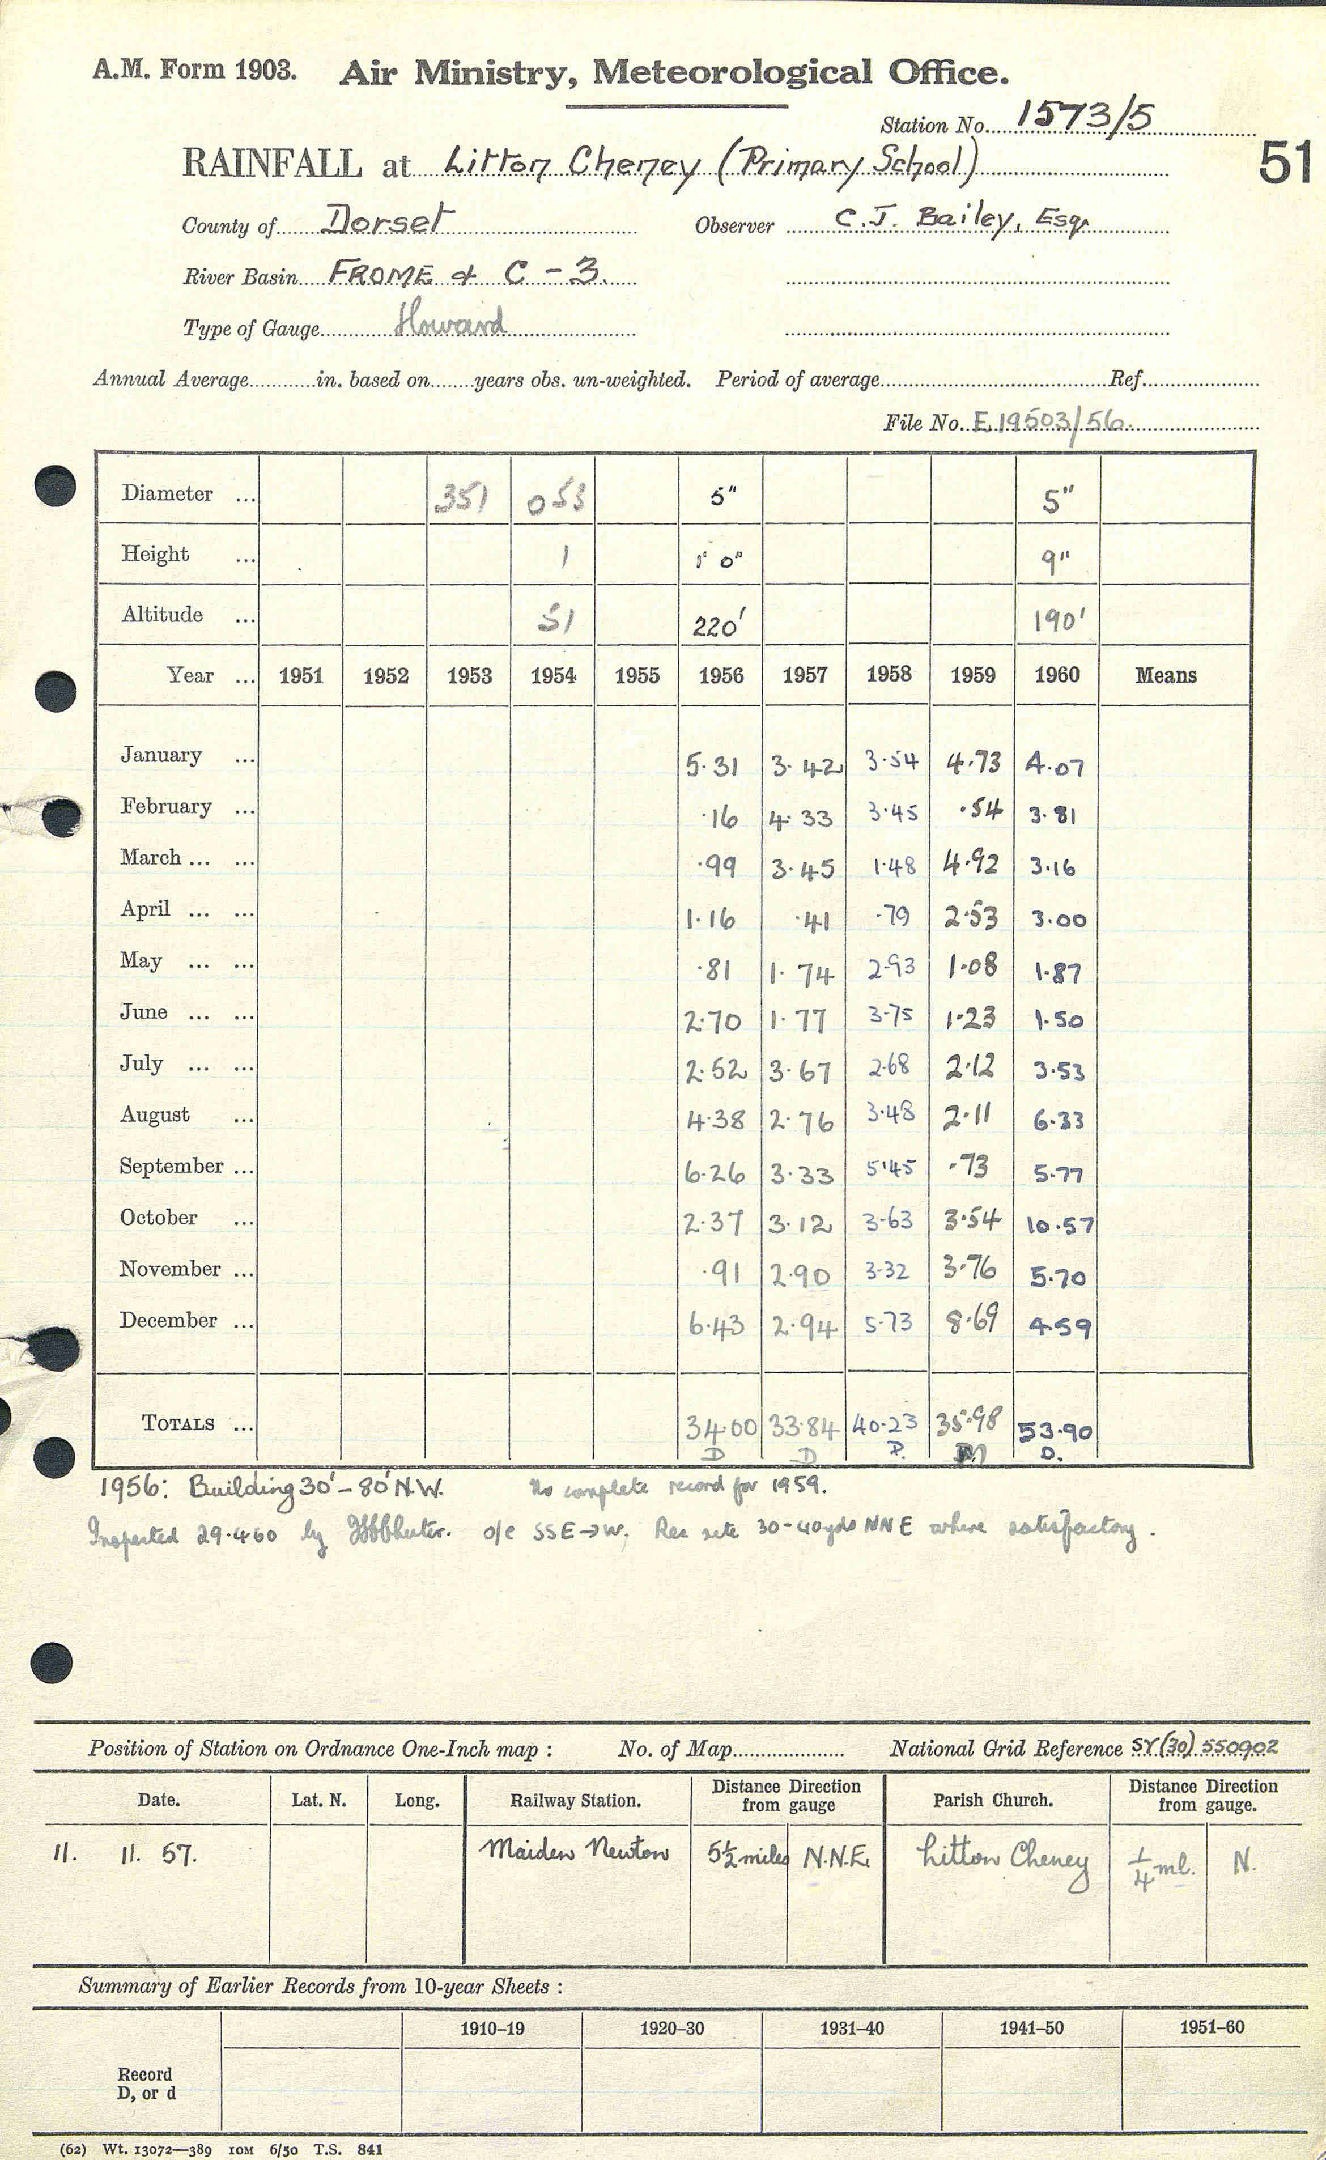 A.M. Form 1903. Air Ministry, Meteorological Office.
Station No. 1573/5
51
RAINFALL at Litton Cheney (Primary School)
County of Dorset Observer C.J. Bailey, Esq.
River Basin FROME & C - 3.
Type of Gauge Howard
Annual Average............in. based on........years obs. un-weighted. Period of average........................................Ref.....................
File No. E 19503/56.
Diameter ... 351 053 5" 5"
Height ... 1 1' 0" 9"
Altitude ... 51 220' 190'
Year ... 1951 1952 1953 1954 1955 1956 1957 1958 1959 1960 Means
January ... 5.31 3.42 3.54 4.73 4.07
February ... .16 4.33 3.45 .54 3.81
March ... ... .99 3.45 1.48 4.92 3.16
April ... ... 1.16 .41 .79 2.53 3.00
May ... ... .81 1.74 2.93 1.08 1.87
June ... ... 2.70 1.77 3.75 1.23 1.50
July ... ... 2.52 3.67 2.68 2.12 3.53
August ... 4.38 2.76 3.48 2.11 6.33
September ... 6.26 3.33 5.45 .73 5.77
October ... 2.37 3.12 3.63 3.54 10.57
November ... .91 2.90 3.32 3.76 5.70
December ... 6.43 2.94 5.73 8.69 4.59
TOTALS ... 34.00 33.84 40.23 35.98 53.90
D D D. D.
1956: Building 30' - 80' N.W. No complete record for 1959.
Inspected 29.4.60 by o/e SSE→W. Rec site 30-40yds NNE where satisfactory.
Position of Station on Ordnance One-Inch map : No. of Map..................... National Grid Reference SY(30) 550902
Date. Lat. N. Long. Railway Station. Distance Direction from gauge Parish Church. Distance Direction from gauge.
11. 11. 57. Maiden Newton 5½ miles N.N.E. Litton Cheney ¼ ml. N.
Summary of Earlier Records from 10-year Sheets :
1910–19 1920–30 1931–40 1941–50 1951–60
Record
D, or d
(62) Wt. 13072—389 10M 6/50 T.S. 841